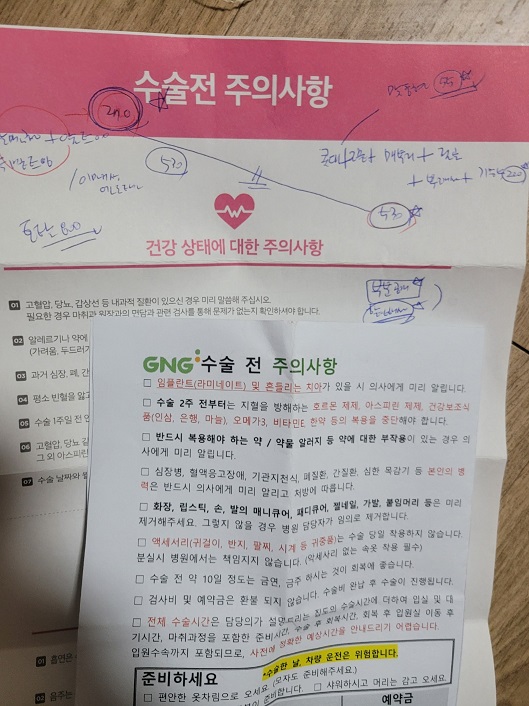 수술전 주의사항
220
530
530
220
건강 상태에 대한 주의사항
01 고혈압, 당뇨, 갑상선 등 내과적 질환이 있으신 경우 미리 말씀해 주십시오.
필요한 경우 마취과 원장과의 면담과 관련 검사를 통해 문제가 없는지 확인하셔야 합니다.
02 알레르기나 약에
(가려움, 두드러기
03 과거 심장, 폐, 간
04 평소 빈혈을 앓고
05 수술 1주일 전 인
06 고혈압, 당뇨
그 외 아스피린
07 수술 날짜와
01 흡연은
02 음주는
GNG 수술 전 주의사항
□ 임플란트(라미네이트) 및 흔들리는 치아가 있을 시 의사에게 미리 알립니다.
□ 수술 2주 전부터는 지혈을 방해하는 호르몬 제제, 아스피린 제제, 건강보조식
품(인삼, 은행, 마늘), 오메가3, 비타민E 한약 등의 복용을 중단해야 합니다.
□ 반드시 복용해야 하는 약 / 약물 알러지 등 약에 대한 부작용이 있는 경우 의
사에게 미리 알립니다.
□ 심장병, 혈액응고장애, 기관지천식, 폐질환, 간질환, 심한 목감기 등 본인의 병
력은 반드시 의사에게 미리 알리고 처방에 따릅니다.
□ 화장, 립스틱, 손, 발의 매니큐어, 패디큐어, 젤네일, 가발, 붙임머리 등은 미리
제거해주세요. 그렇지 않을 경우 병원 담당자가 임의로 제거합니다.
□ 액세서리(귀걸이, 반지, 팔찌, 시계 등 귀중품)는 수술 당일 착용하지 않습니다.
분실시 병원에서는 책임지지 않습니다. (악세사리 없는 속옷 착용 필수)
□ 수술 전 약 10일 정도는 금연, 금주 하시는 것이 회복에 좋습니다.
□ 검사비 및 예약금은 환불 되지 않습니다. 수술비 완납 후 수술이 진행됩니다.
□ 전체 수술시간은 담당의가 설명드리는 집도의 수술시간에 더하여 입실 및 대
기시간, 마취과정을 포함한 준비시간, 수술 후 회복시간, 회복 후 입원실 이동 후
입원수속까지 포함되므로, 사전에 정확한 예상시간을 안내드리기 어렵습니다.
*수술한 날, 차량 운전은 위험합니다.
준비하세요
(모자도 준비해주세요.)
□ 편안한 옷차림으로 오세요
□ 샤워하시고 머리는 감고 오세요
예약금